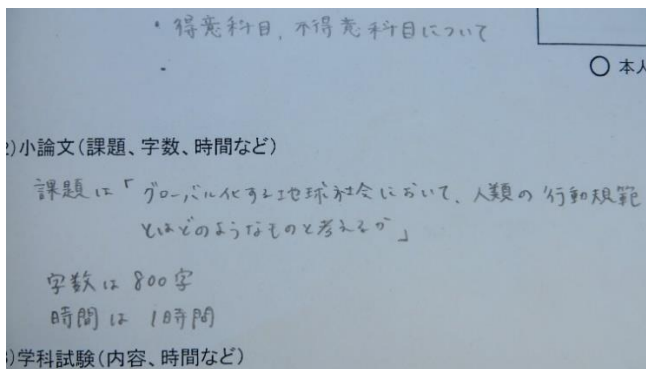 ・得意科目、不得意科目について
・
○ 本人
2)小論文(課題、字数、時間など)
課題は「グローバル化する地球社会において、人類の行動規範
とはどのようなものと考えるか」
字数は800字
時間は 1時間
)学科試験(内容、時間など)